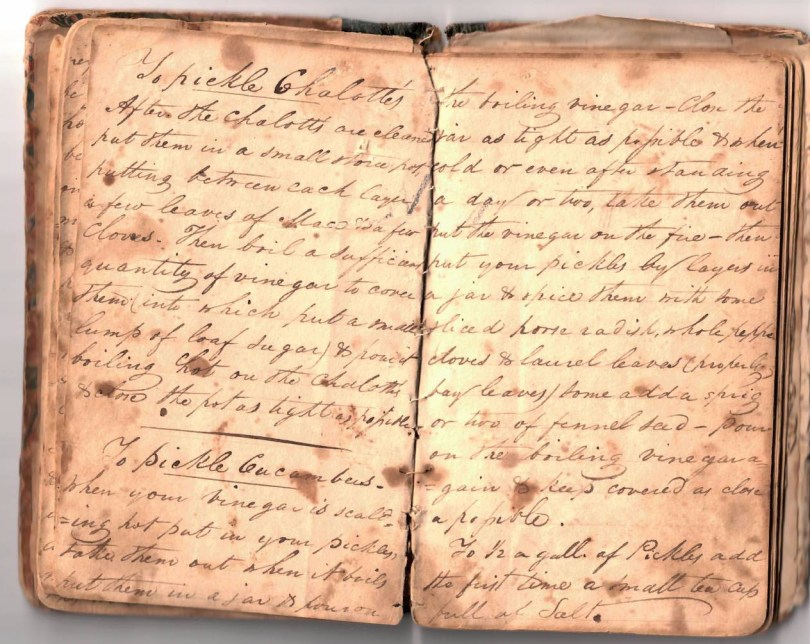 To pickle Chalotts
After the Chalotts are cleaned
put them in a small stone pot,
putting between each layer
a few leaves of Mace & a few
Cloves. Then boil a sufficient
quantity of vinegar to cover
them (into which put a small
lump of loaf sugar) & pour it
boiling hot on the Chalotts
& close the pot as tight as possible.
To pickle Cucumbers-
When your vinegar is scald
=ing hot put in your pickles
take them out when it boils
put them in a jar & pour on
the boiling vinegar - Close the
jar as tight as possible & when
cold or even after standing
a day or two, take them out
put the vinegar on the fire - then
put your pickles by layers in
a jar & spice them with some
sliced horse radish, whole pepper
cloves & laurel leaves (properly
bay leaves) some add a sprig
or two of fennel seed - Pour
on the boiling vinegar a=
=gain & keep covered as close
a possible.
To ½ a gall. of Pickles add
the first time a small tea cup
full of Salt.